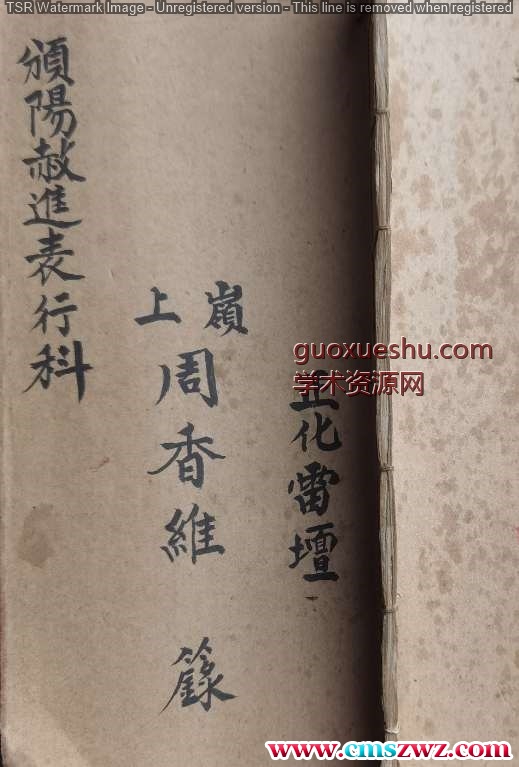 TSR Watermark Image - Unregistered version - This line is removed when registered
正化雷壇
嶺上
周香維 籙
頒陽赦進表行科
guoxueshu.com
学术资源网
www.cmszwz.com